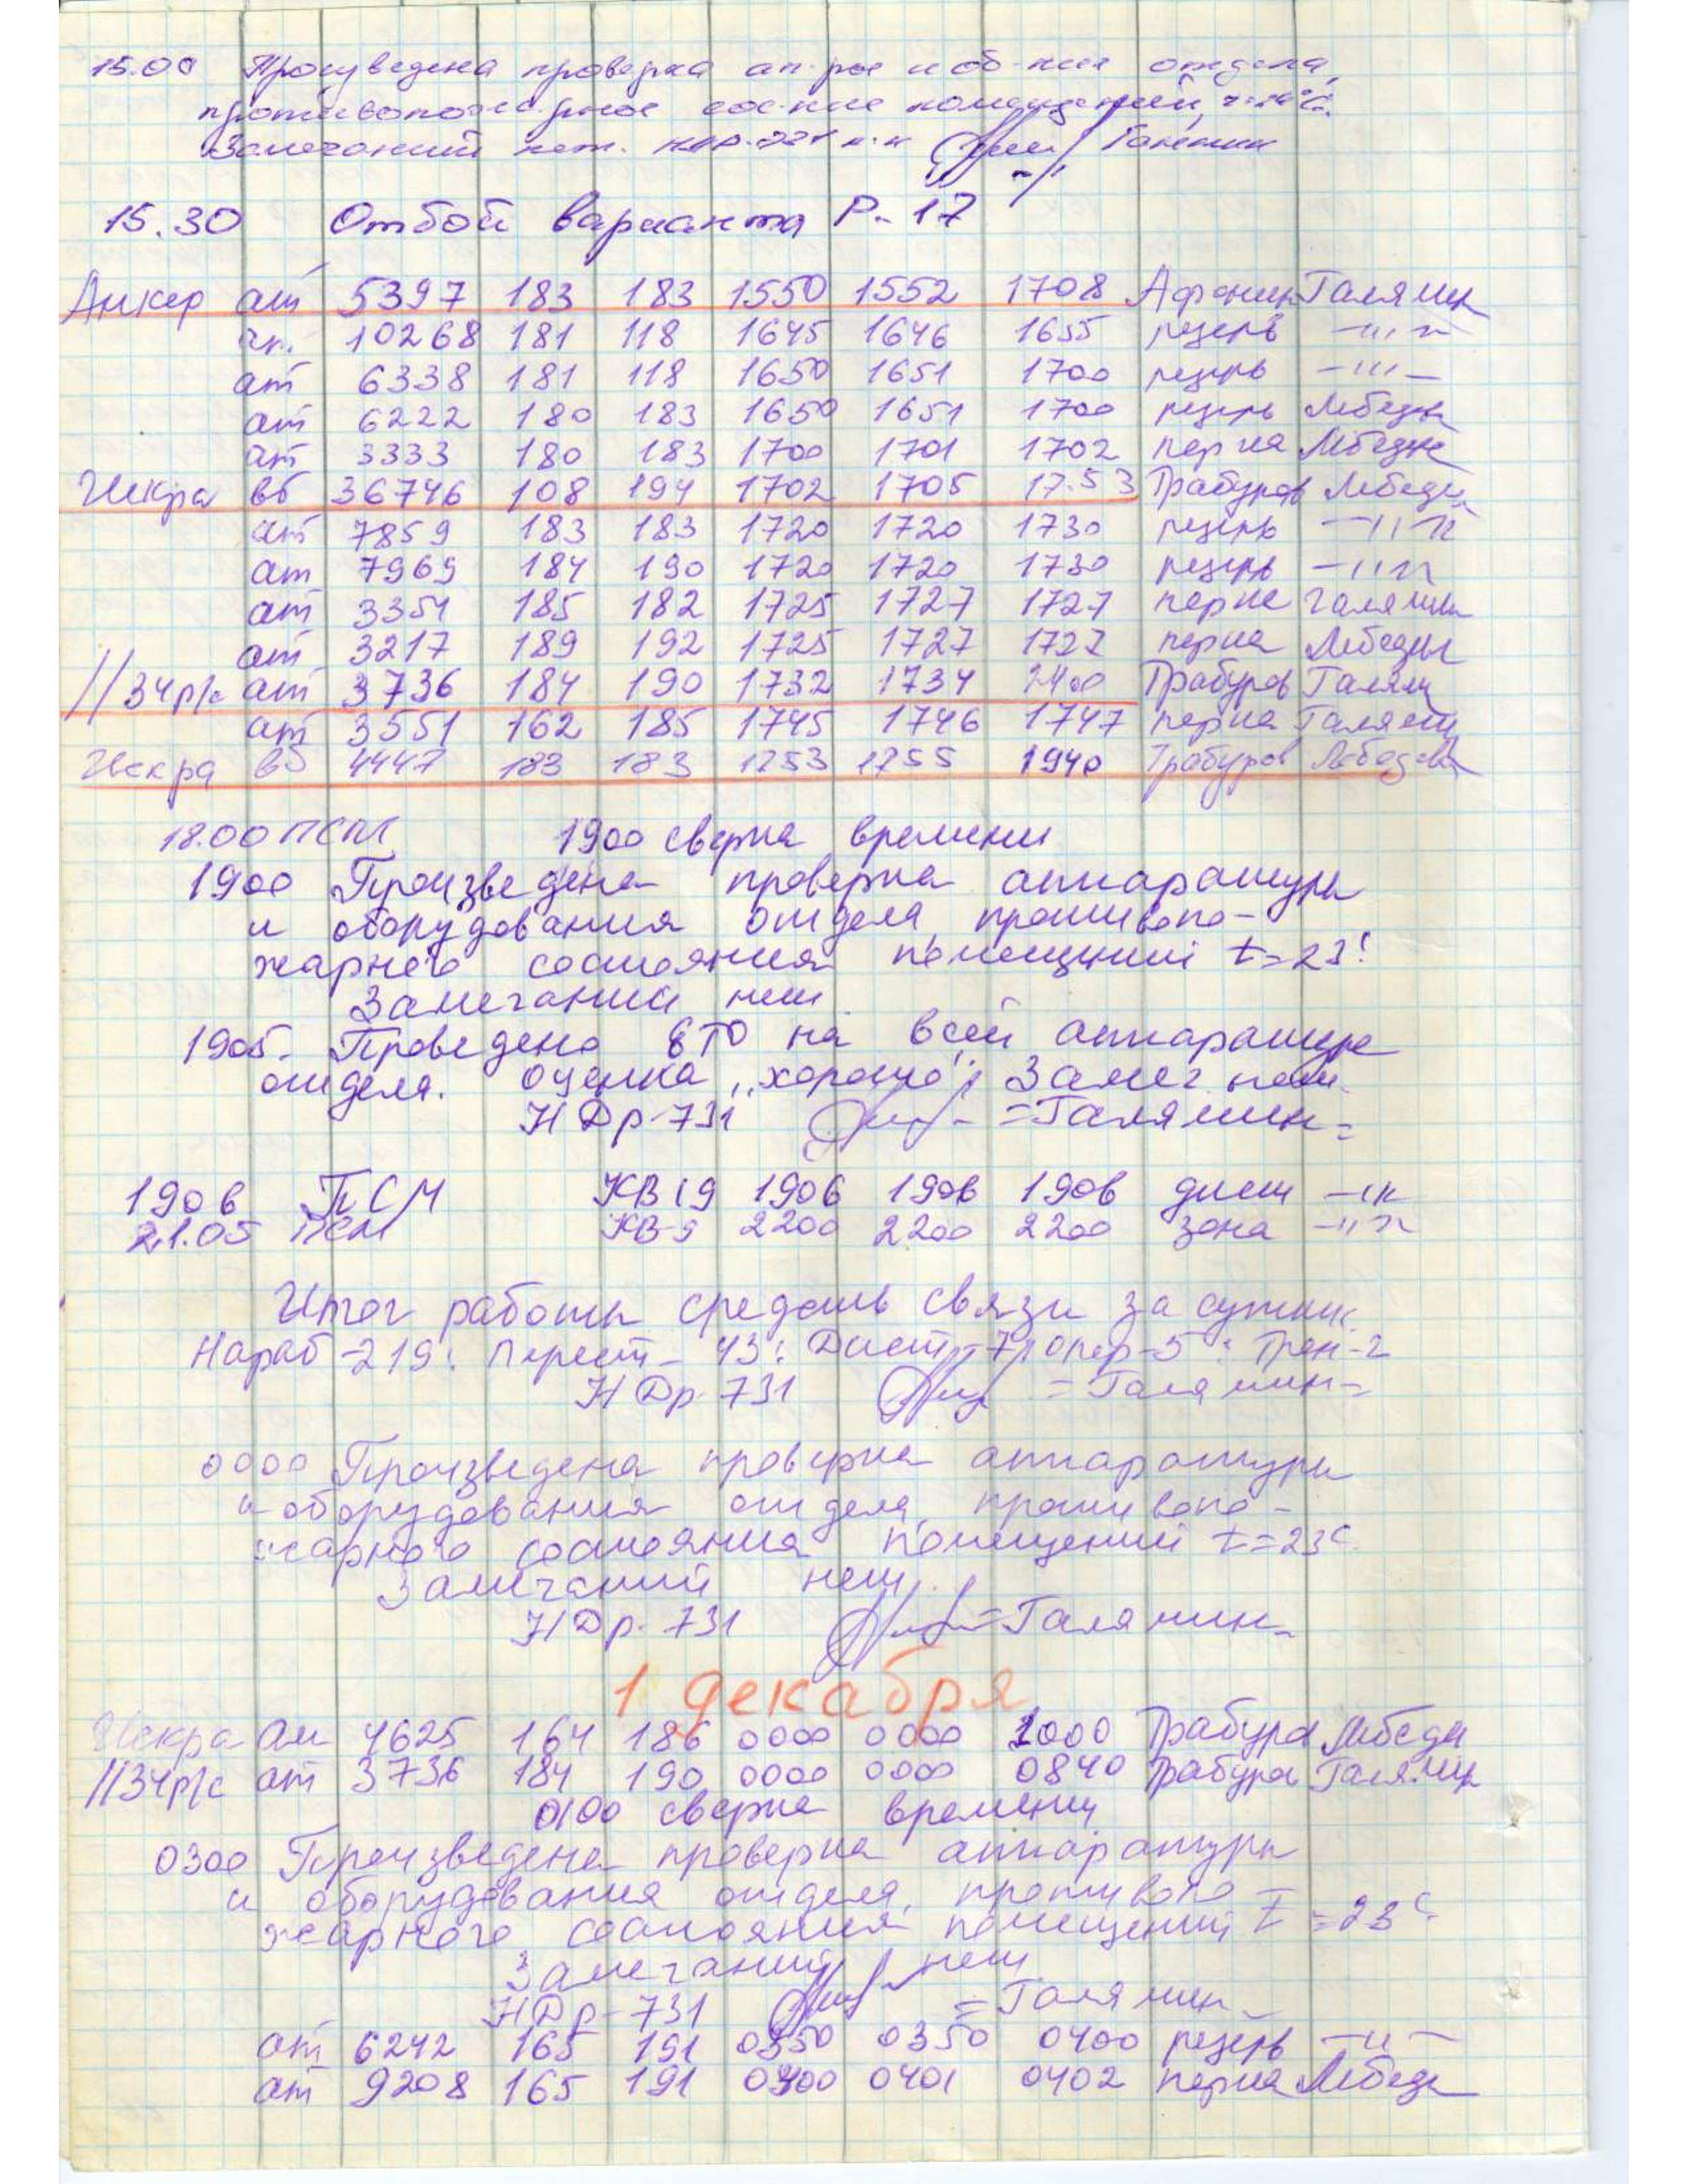 15.00 Произведена проверка ап-ры и об-ния отдела,
противопожарное сос-ние помещений,
Замечаний нет. Галямин
15.30 Отбой варианта Р-17
Анкер ат 5397 183 183 1550 1552 1708 Афонин Галямин
10268 181 118 1645 1646 1655 резерв -"-
ат 6338 181 118 1650 1651 1700 резерв -"-
ат 6222 180 183 1650 1651 1700 резерв Лебедев
ат 3333 180 183 1700 1701 1702 перна Лебедев
Искра вб 36746 108 194 1702 1705 17.53 Трабуров Лебедев
ат 7859 183 183 1720 1720 1730 резерв -"-
ат 7969 184 190 1720 1720 1730 резерв -"-
ат 3351 185 182 1725 1727 1727 перна Галямин
ат 3217 189 192 1725 1727 1727 перна Лебедев
//34р/с ат 3736 184 190 1732 1734 2400 Трабуров Галямин
ат 3551 162 185 1745 1746 1747 перна Галямин
Искра вб 4447 183 183 1753 1755 1940 Трабуров Лебедев
18.00 ПСМ 1900 сверка времени
1900 Произведена проверка аппаратуры
и оборудования отдела, противопо-
жарного состояния помещений t=23°
Замечаний нет
1905- Проведено ЕТО на всей аппаратуре
отдела. Оценка „хорошо", Замеч. нет.
НДр-731 =Галямин=
1906 ПСМ КВ19 1906 1906 1906 дист -"-
21.05 ПСМ КВ-9 2200 2200 2200 зона -"-
Итог работы средств связи за сутки.
Нараб-219: Перест-43: Дист-7: опер-5: Трен-2
НДр-731 =Галямин=
0000 Произведена проверка аппаратуры
и оборудования отдела, противопо-
жарного состояния помещений t=23С.
Замечаний нет.
НДр-731 =Галямин=
1 декабря
Искра ат 4625 164 186 0000 0000 1000 Трабуров Лебедев
//34р/с ат 3736 184 190 0000 0000 0840 Трабуров Галямин
0100 сверка времени
0300 Произведена проверка аппаратуры
и оборудования отдела, противопо-
жарного состояния помещений t=23С.
Замечаний нет
НДр-731 =Галямин=
ат 6242 165 191 0350 0350 0400 резерв -"-
ат 9208 165 191 0400 0401 0402 перна Лебедев